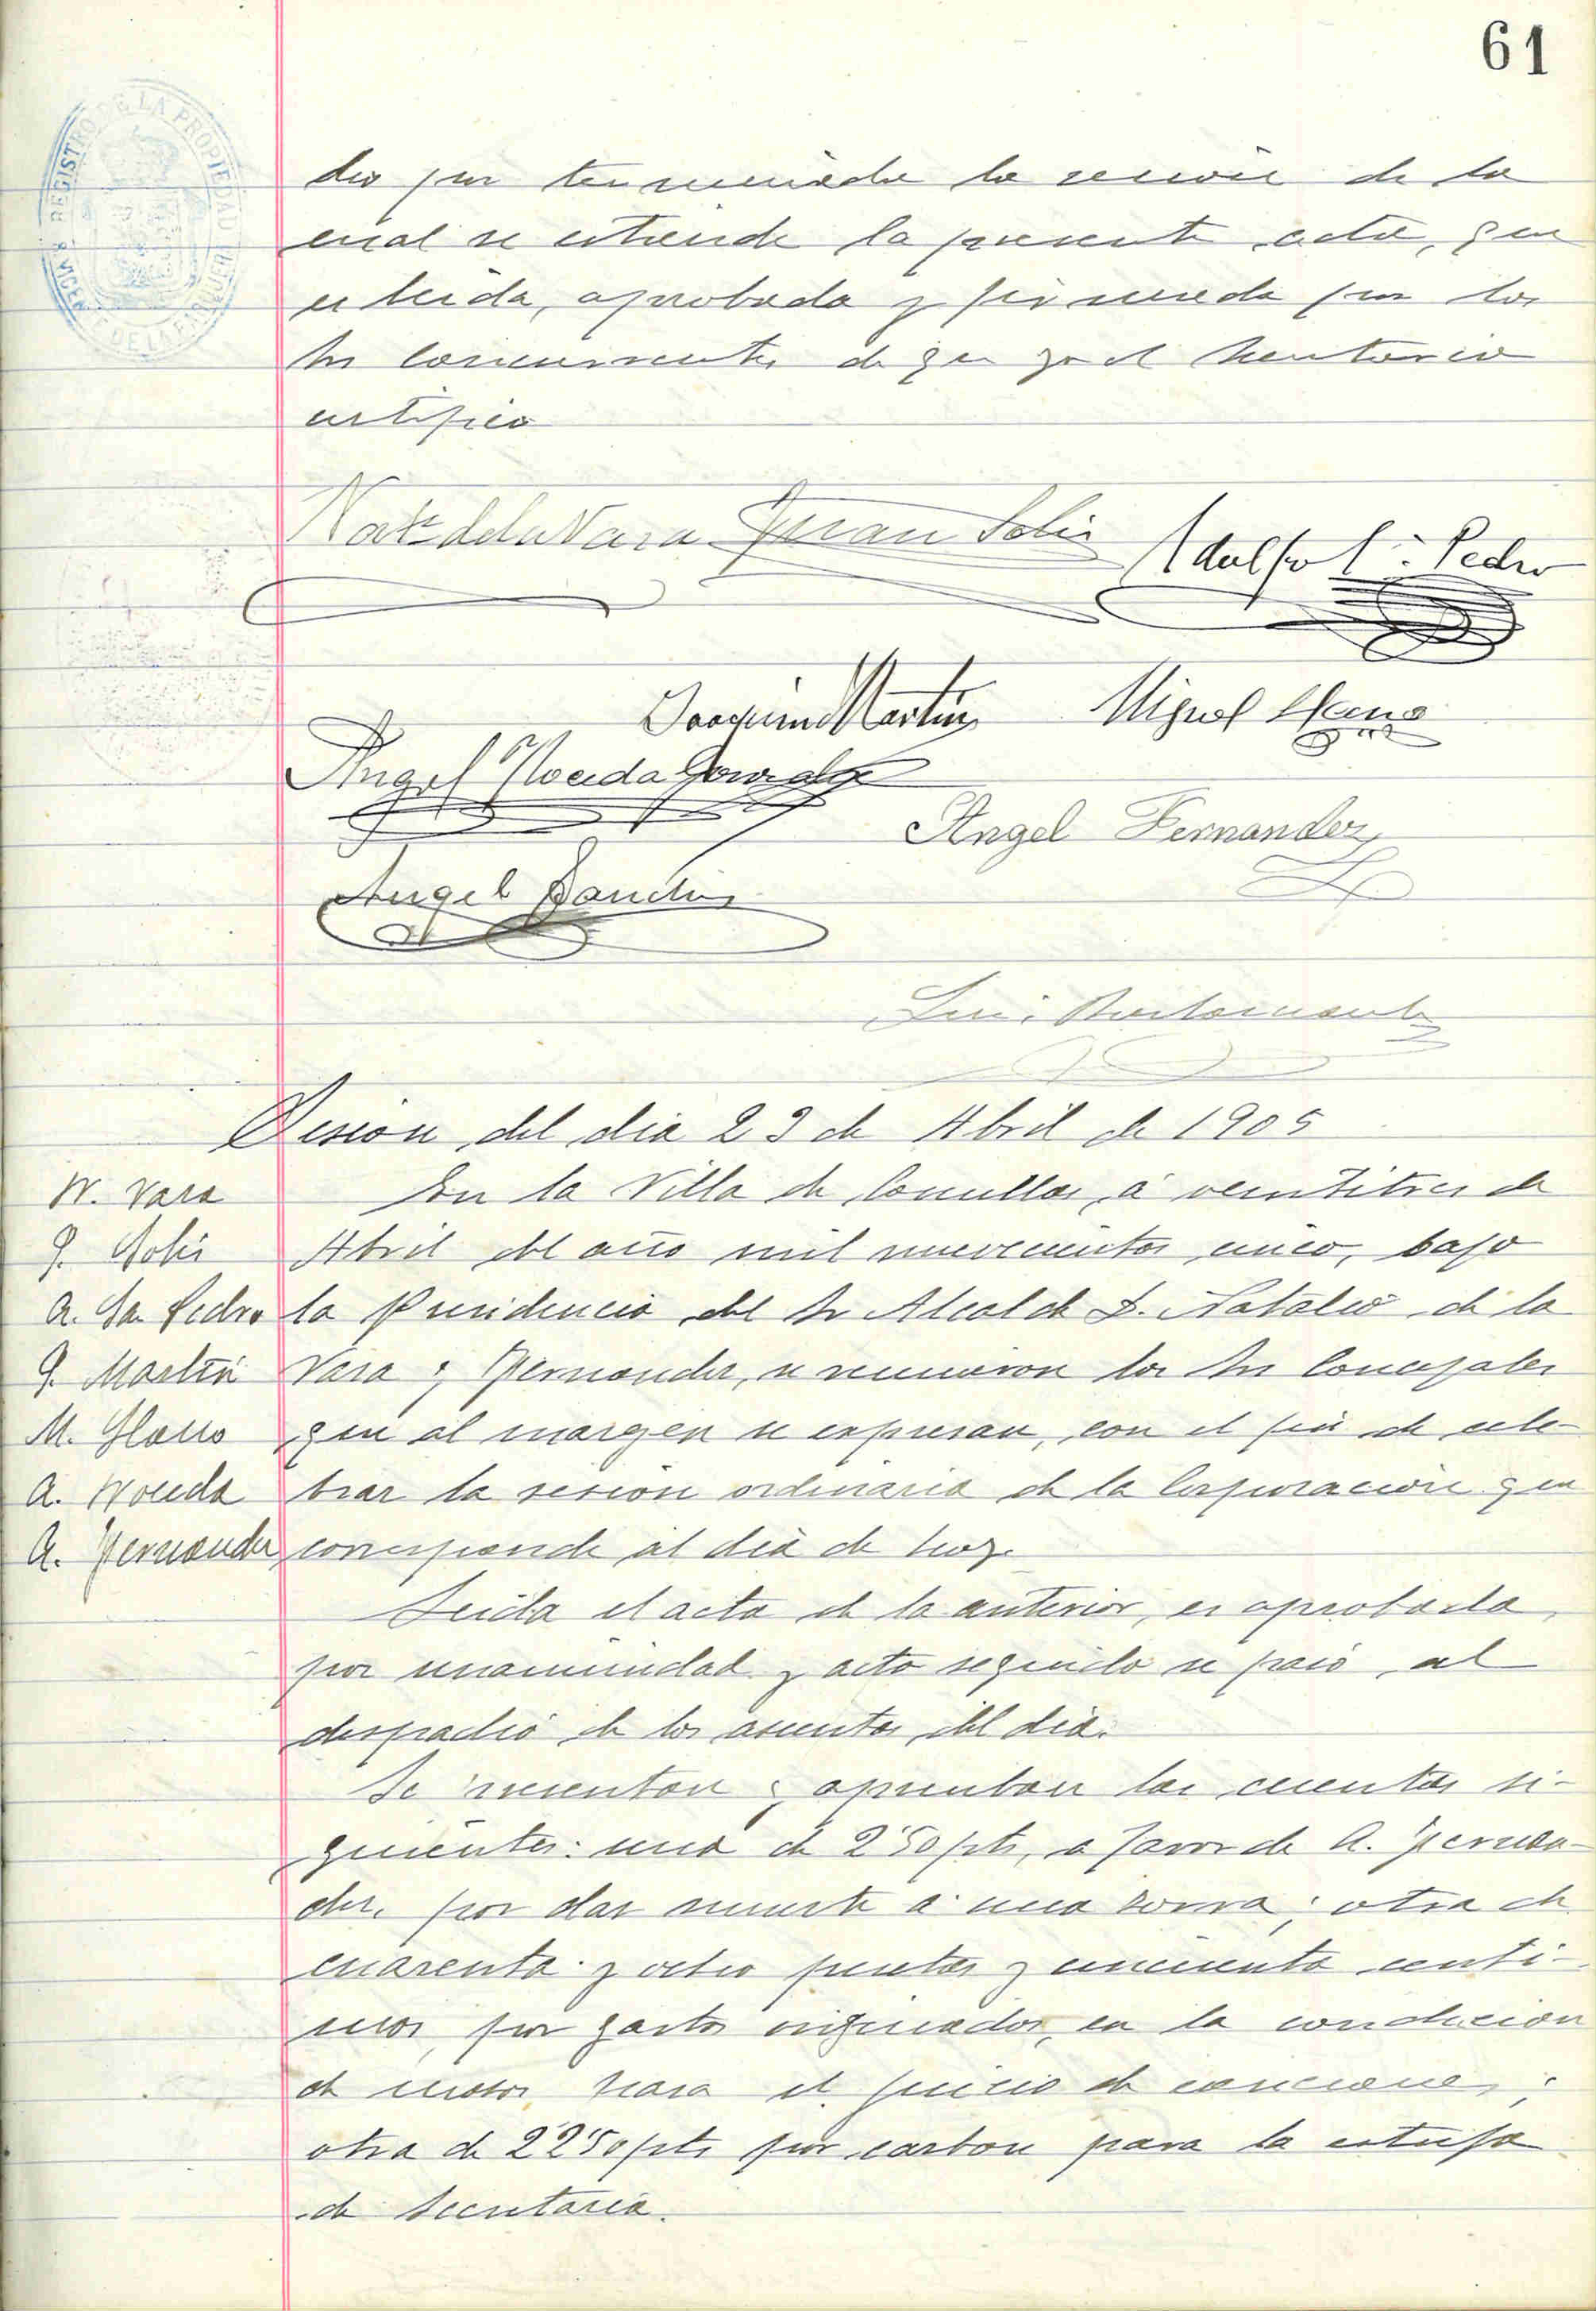 61
dio por terminada la sesión de la
cual se estiende la presente acta, que
es leida, aprobada y firmada por los
Sres concurrentes de que yo el Secretario
certifico
Natº de la Vara Juan Solis
Adolfo Sn Pedro
Joaquin Martin Miguel Llano
Angel Noceda Gonzalez
Angel Fernandez
Angel Sanchez
Luis Bustamante
Sesion del dia 23 de Abril de 1905
N. Vara
J. Solis
A. San Pedro
J. Martin
M. Llano
A. Noceda
A. Fernandez
En la Villa de Comillas, á veintitres de
Abril del año mil novecientos cinco, bajo
la Presidencia del Sr Alcalde D. Natalio de la
Vara y Fernandez, se reunieron los Sres Concejales
que al margen se expresan, con el fin de cele-
brar la sesion ordinaria de la Corporación que
corresponde al dia de hoy.
Leida el acta de la anterior, es aprobada
por unanimidad y acto seguido se pasó al
despacho de los asuntos del dia.
Se presentan y aprueban las cuentas si-
guientes: una de 2'50 pts, a favor de A. Fernan-
dez, por dar muerte á una zorra; otra de
cuarenta y ocho pesetas y cincuenta centi-
mos, por gastos originados en la conduccion
de mozos para el juicio de exenciones;
otra de 22'50 pts por carbon para la estufa
de Secretaria.